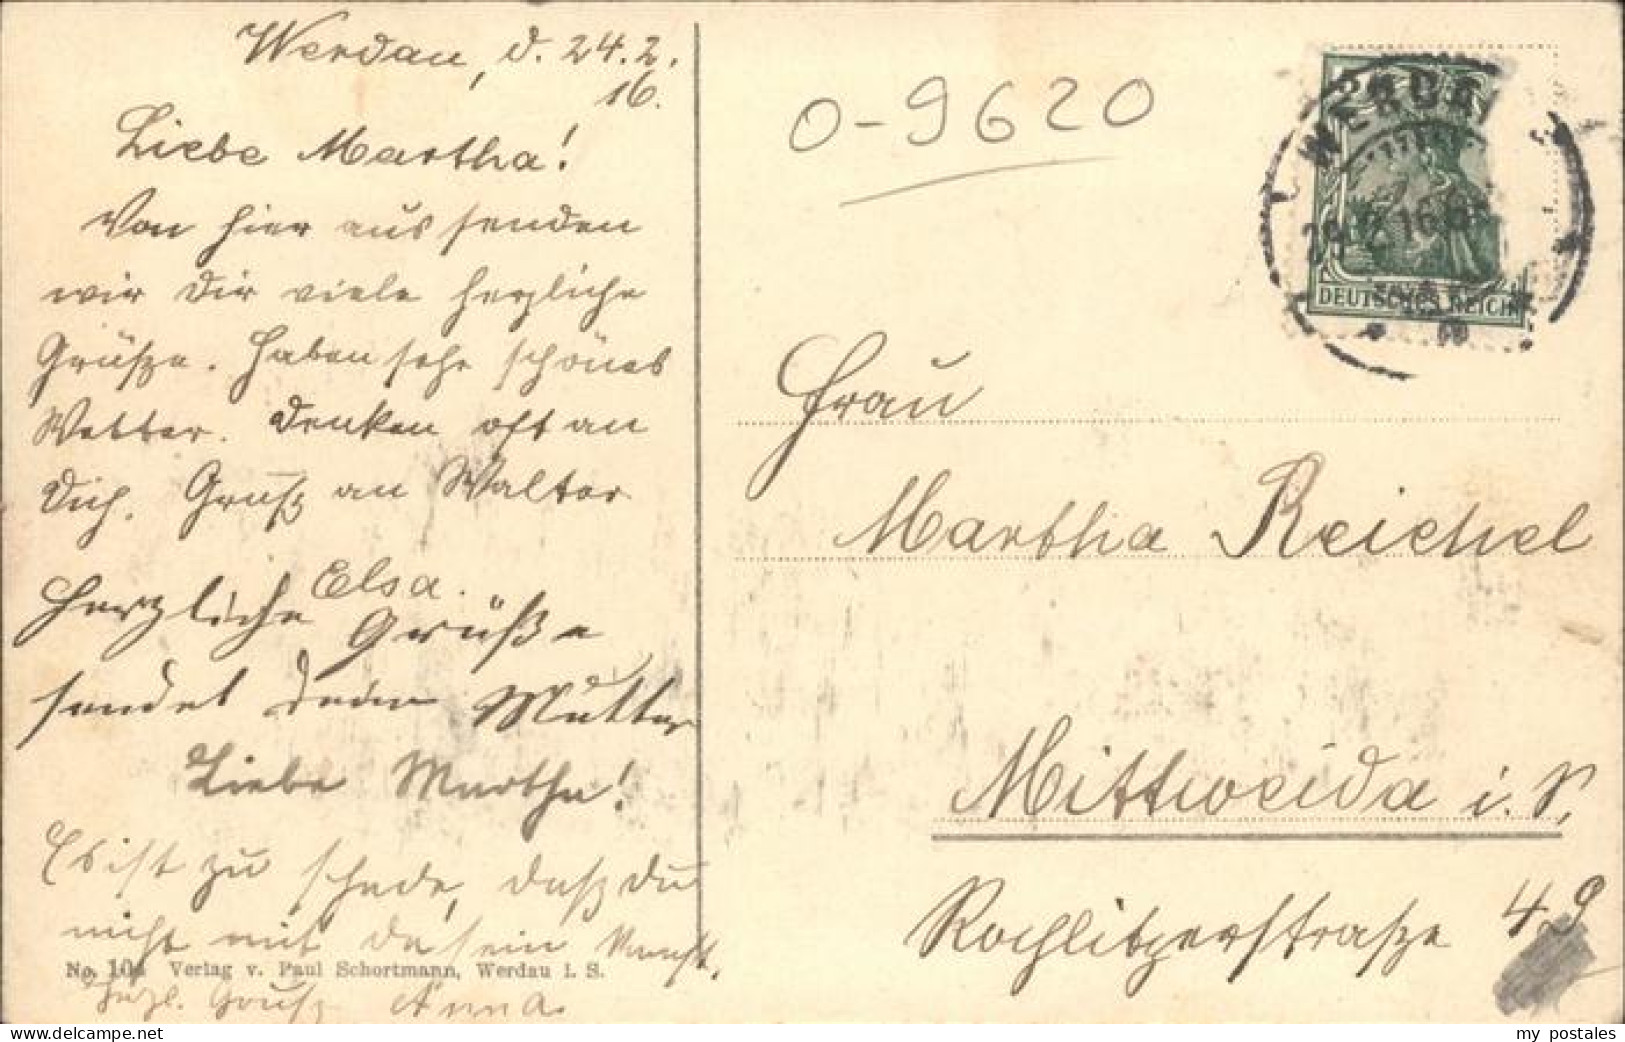 Werdau, d. 24.2.
16.
Liebe Martha!
Von hier aus senden
wir Dir viele herzliche
Grüsze. Haben sehr schönes
Wetter. Denken oft an
Dich. Grusz an Walter
Elsa.
Herzliche Grüße
sendet deine Mutter
Liebe Martha!
Es ist zu schade, dasz du
nicht mit da sein kannst.
No. 104 Verlag v. Paul Schortmann, Werdau i. S.
Herzl. Grusz Anna.
0-9620
WERDAU
DEUTSCHES REICH
Frau
Martha Reichel
Mittweida i. S.
Rochlitzerstrasze 49
my postales
www.delcampe.net